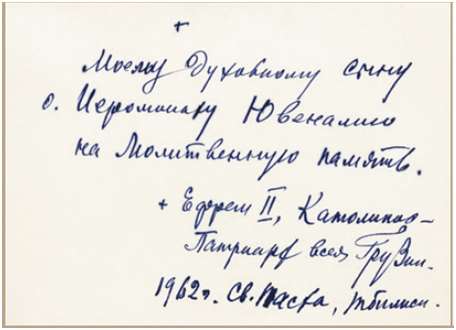 +
Моему Духовному сыну
о. Иеромонаху Ювеналию
на Молитвенную память.
+ Ефрем II, Католикос-
Патриарх всея Грузии.
1962 г. Св. Пасха, Тбилиси.